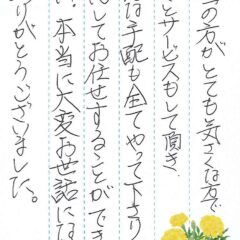 の方がとても気さくな方で
とサービスもして頂き、
な手配も全てやって下さり
心してお任せすることができ
。本当に大変お世話にな
りがとうございました。